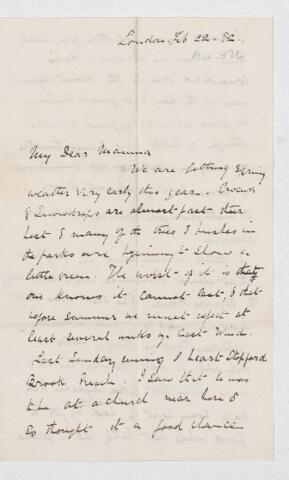 London Feb 22. 82.
My Dear Mamma
We are getting Spring
weather very early this year. Crocus
& Snowdrops are almost past their
best & many of the trees & bushes in
the parks are beginning to show a
little green. The worst of it is that
one knows it cannot last, & that
before summer we must expect at
least several weeks of East Wind
Last Sunday evening I heard Stopford
Brook Preach. I saw that he was
to be at a church near here &
so thought it a good chance